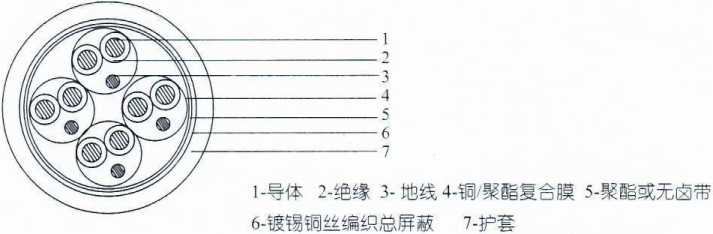 1
2
3
4
5
6
7
1-导体 2-绝缘 3- 地线 4-铜/聚酯复合膜 5-聚酯或无卤带
6-镀锡铜丝编织总屏蔽 7-护套